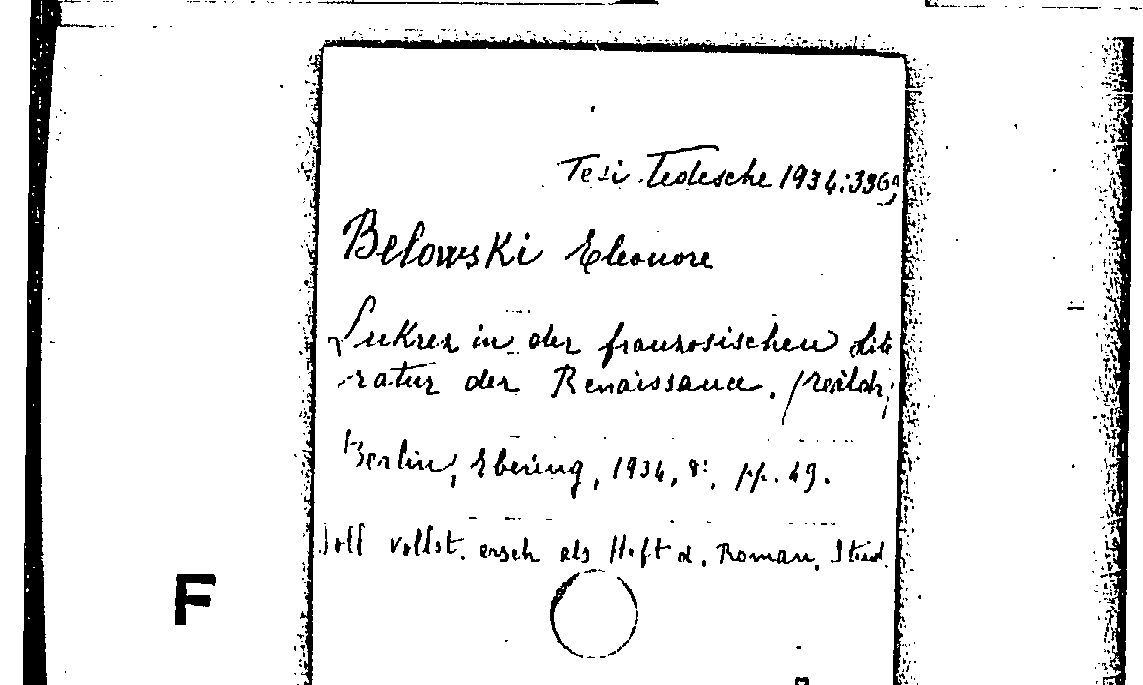 Tesi Tedesche 1934:336
Belowski Eleonore
Lukrez in der franzosischen Lite
ratur der Renaissance.
Berlin, Ebering, 1934, 8°, pp. 49.
Soll vollst. ersch als Heft d. Roman. Stud.
F